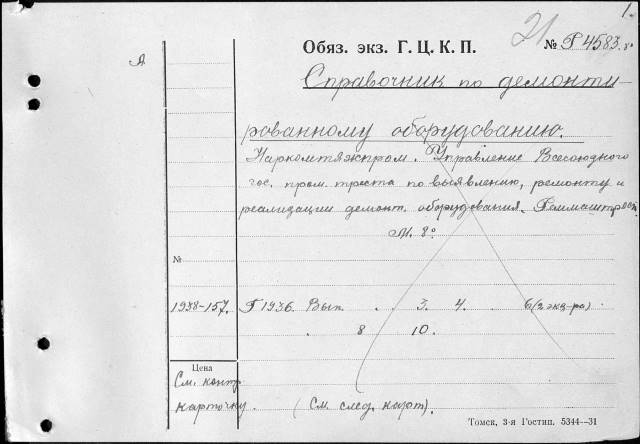 1.
21
Обяз. экз. Г. Ц. К. П. № Р 4583. 8°
А
Справочник по демонти
рованному оборудованию.
Наркомтяжпром. Управление Всесоюзного
гос. пром. треста по выявлению, ремонту и
реализации демонт. оборудования.
М. 8°
№
1938-157. Г 1936. Вып. . . 3. 4. 6 (2 экз-ра)
. 8 10.
Цена
См. контр.
карточку. (См. след. карт).
Томск, 3-я Гостип. 5344—31